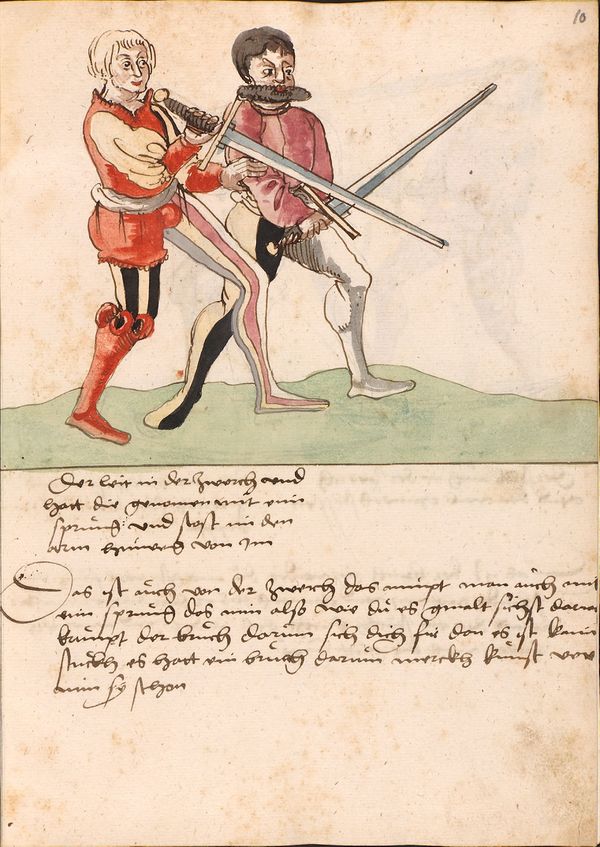 10
Der leit in der zwerch und
hatt die genomen mitt ein
sprung und stost im den
arm hinweg von im
Das ist auch von der zwerch das nimpt man auch mit
ein sprung das nim also wie du es gmalt sichst darin
kumpt der bruch darum sich dich für dan es ist kain
stuckh es hatt ein bruch darum merckh kunst
nim sy schon